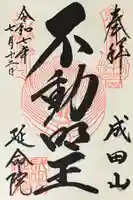 奉拝
成田山
不動明王
令和七年
七月十三日
延命院